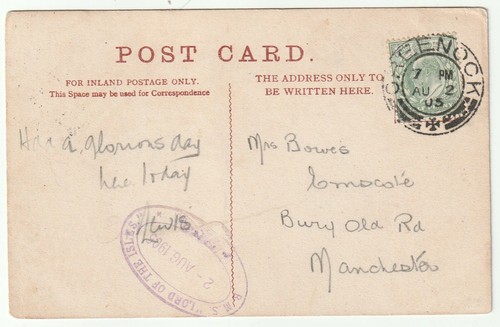 POST CARD.
FOR INLAND POSTAGE ONLY.
This Space may be used for Correspondence
THE ADDRESS ONLY TO
BE WRITTEN HERE.
GREENOCK
7 PM
AU 2
05
Had a glorious day
here today
Lewis
R.M.S. "LORD OF THE ISLES"
2 - AUG 190
Mrs Bowes
Emscote
Bury Old Rd
Manchester